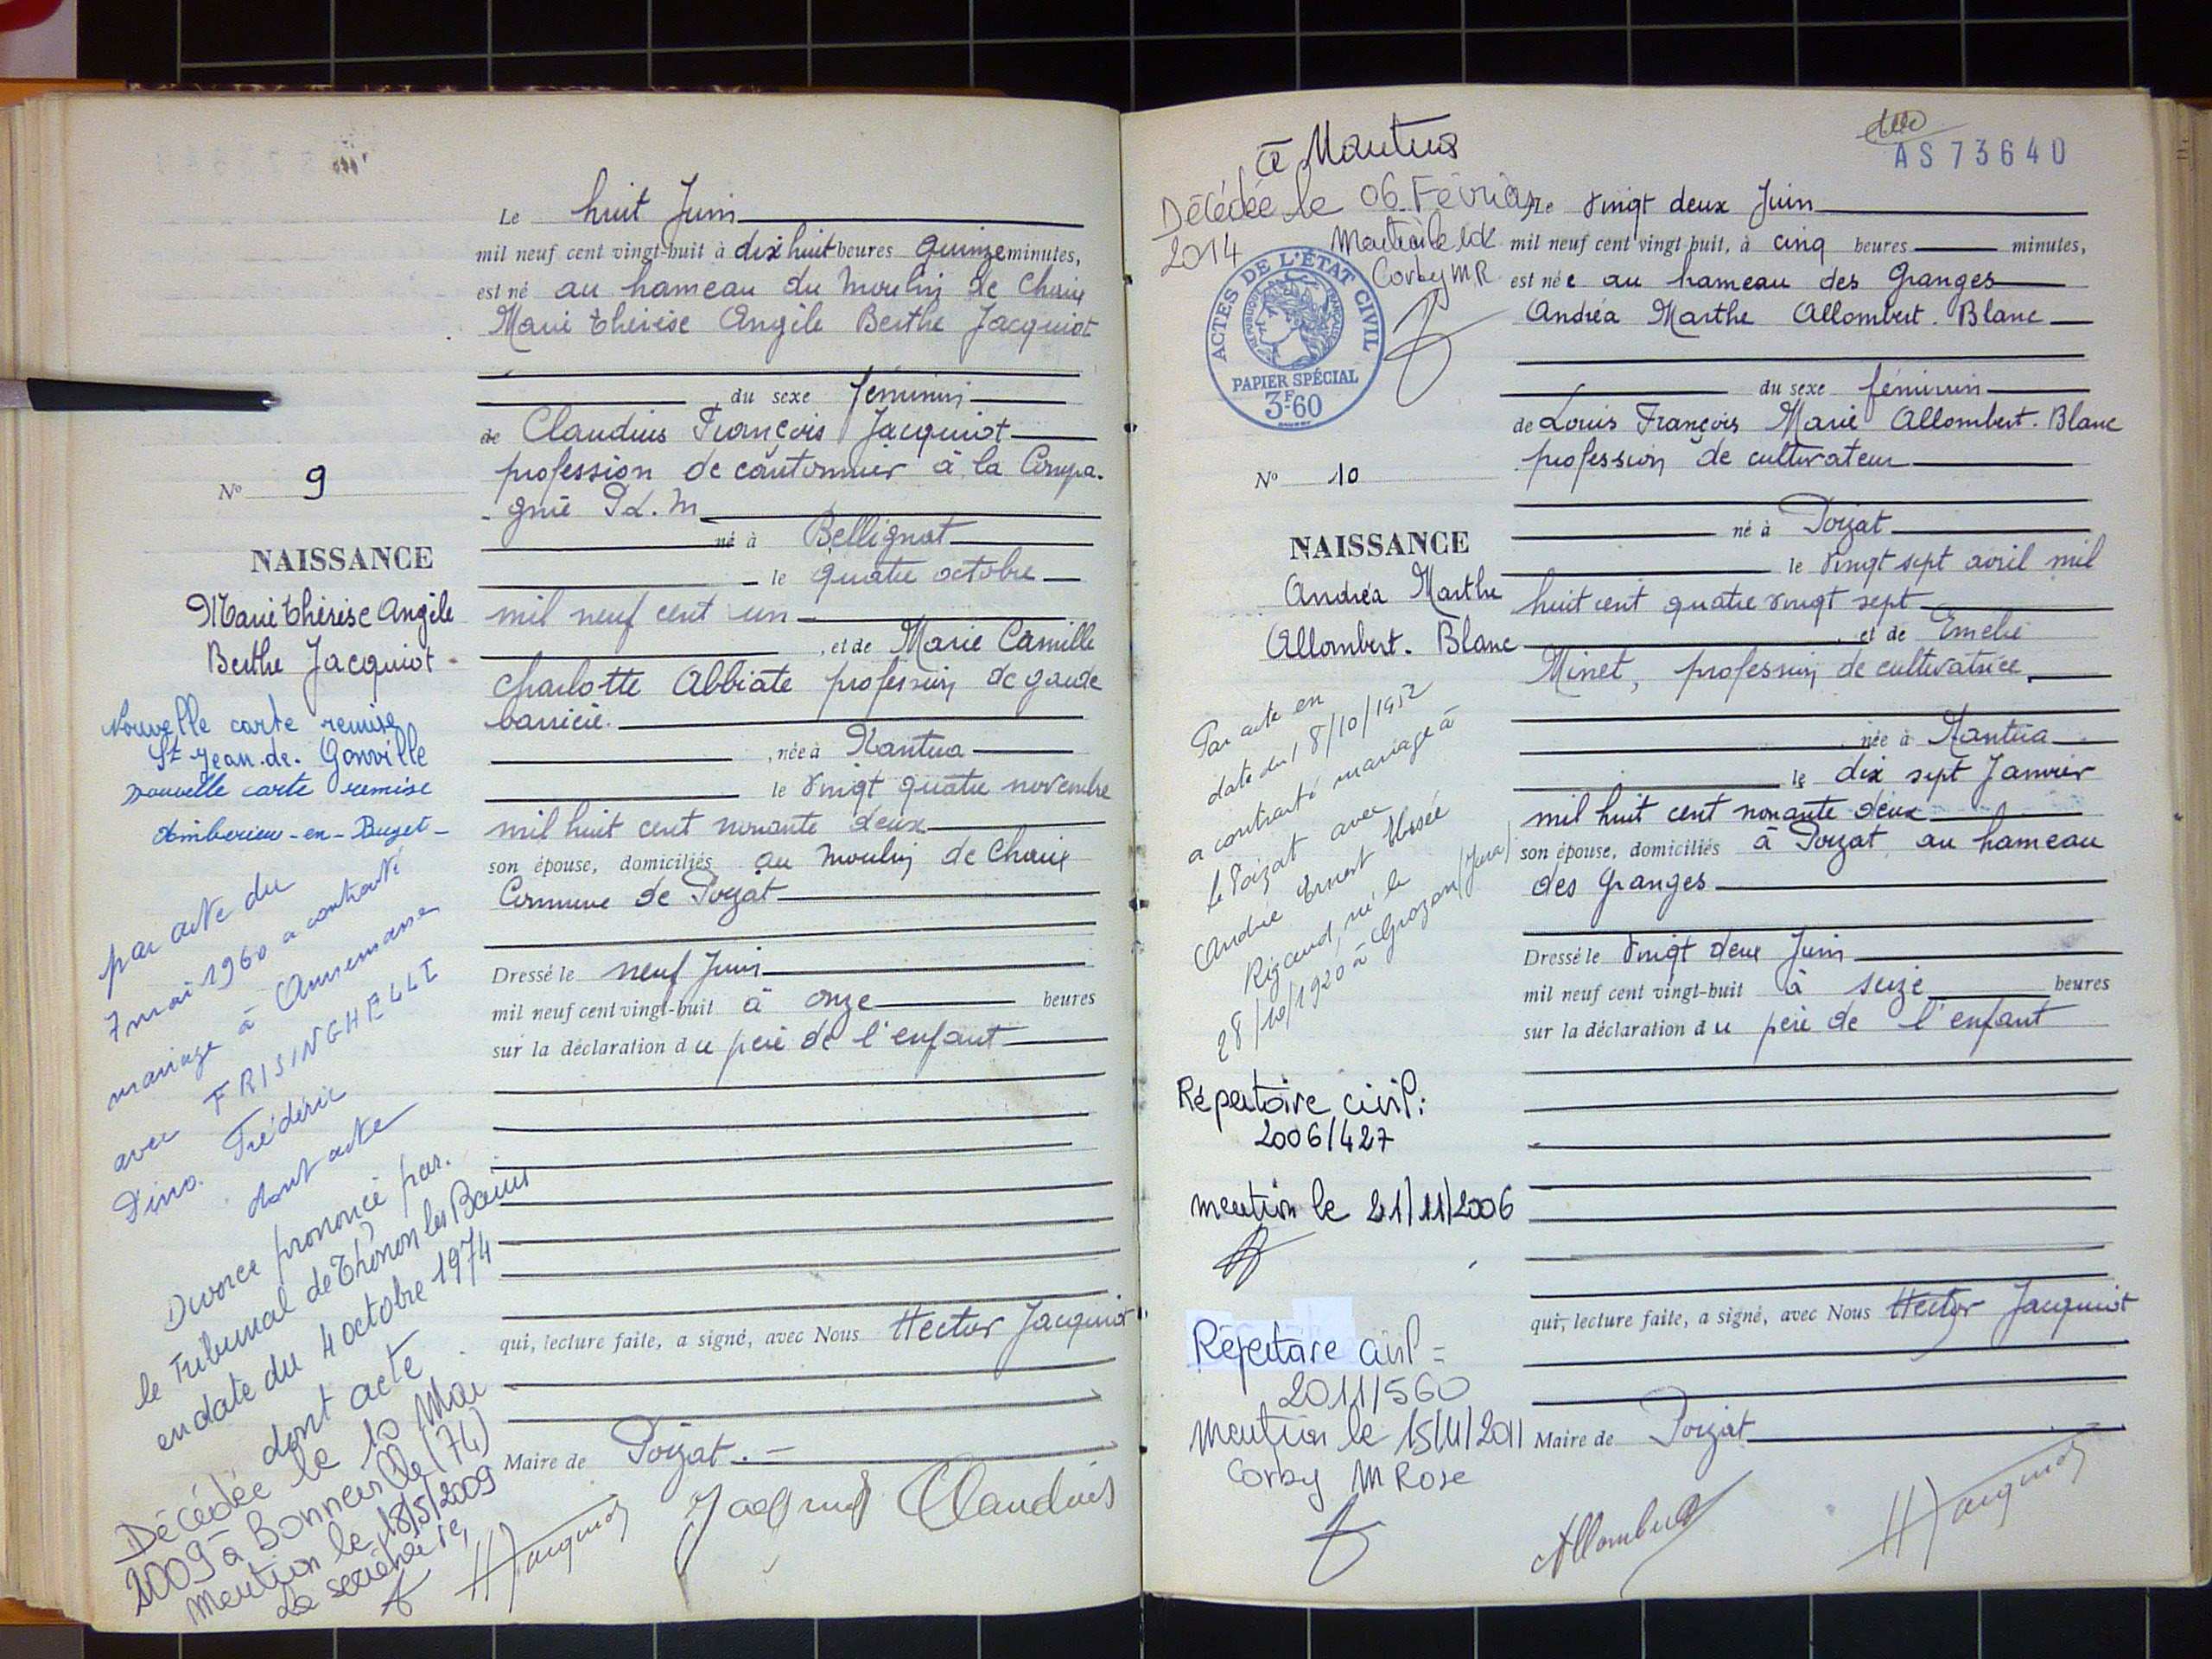 Le huit Juin
mil neuf cent vingt-huit à dix huit heures quinze minutes,
est né au hameau du Moulin de Chaix
Marie thérèse Angèle Berthe Jacquiot
du sexe féminin
de Claudius François Jacquiot
profession de cantonnier à la Compa-
gnie P.L.M
né à Bellignat
le quatre octobre
mil neuf cent un
, et de Marie Camille
Charlotte Abbiate profession de garde
barrière.
, née à Nantua
le vingt quatre novembre
mil huit cent nonante deux
son épouse, domiciliés au Moulin de Chaix
Commune de Poizat
Dressé le neuf Juin
mil neuf cent vingt-huit à onze heures
sur la déclaration du père de l'enfant
qui, lecture faite, a signé, avec Nous Hector Jacquiot
Maire de Poizat. -
HJacquiot Jacquiot Claudius
No 9
NAISSANCE
Marie thérèse Angèle
Berthe Jacquiot
Nouvelle carte remise
St Jean-de-Gonville
Nouvelle carte remise
Amberieu-en-Bugey-
par acte du
7 mai 1960 a contracté
mariage à Annemasse
avec FRISINGHELLI
Dino. Frédéric
dont acte
Divorce prononcé par.
le Tribunal de Thonon les Bains
en date du 4 octobre 1974
dont acte
Décédée le 10 Mai
2009 à Bonneville (74)
Mention le 18/5/2009
La secrétaire,
à Mantua
Décédée le 06 Février
2014
Corby MR
ACTES DE L'ÉTAT CIVIL
PAPIER SPÉCIAL
3F60
AS 73640
No 10
NAISSANCE
Andréa Marthe
Allombert-Blanc
Par acte en
date du 18/10/1952
a contracté mariage à
Le Poizat avec
André Ernest Elisée
Rigaud, né le
28/10/1920 à Grozon (Jura)
Répertoire civil:
2006/427
mention le 21/11/2006
Répertoire civil =
2011/560
Mention le 15/11/2011
Corby M Rose
Le vingt deux Juin
mil neuf cent vingt huit, à cinq heures minutes,
est née au hameau des Granges
Andréa Marthe Allombert-Blanc
du sexe féminin
de Louis François Marie Allombert-Blanc
profession de cultivateur
né à Poizat
le vingt sept avril mil
huit cent quatre vingt sept
, et de Emelie
Minet, profession de cultivatrice
née à Nantua
le dix sept Janvier
mil huit cent nonante deux
son épouse, domiciliés à Poizat au hameau
des Granges
Dressé le vingt deux Juin
mil neuf cent vingt-huit à seize heures
sur la déclaration du père de l'enfant
qui, lecture faite, a signé, avec Nous Hector Jacquiot
Maire de Poizat
Allombert HJacquiot